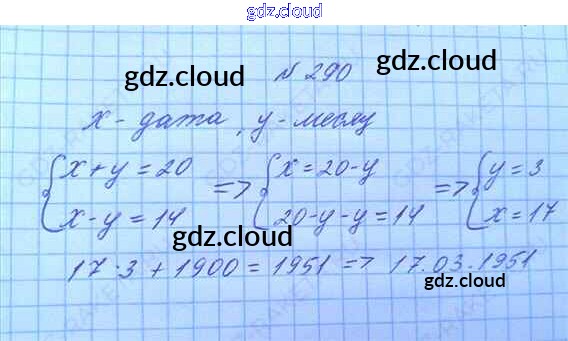 gdz.cloud
gdz.cloud № 290 gdz.cloud
x - дата, y - месяц
{x + y = 20 => {x = 20 - y => {y = 3
{x - y = 14 {20 - y - y = 14 {x = 17
gdz.cloud
17 · 3 + 1900 = 1951 => 17.03.1951
gdz.cloud